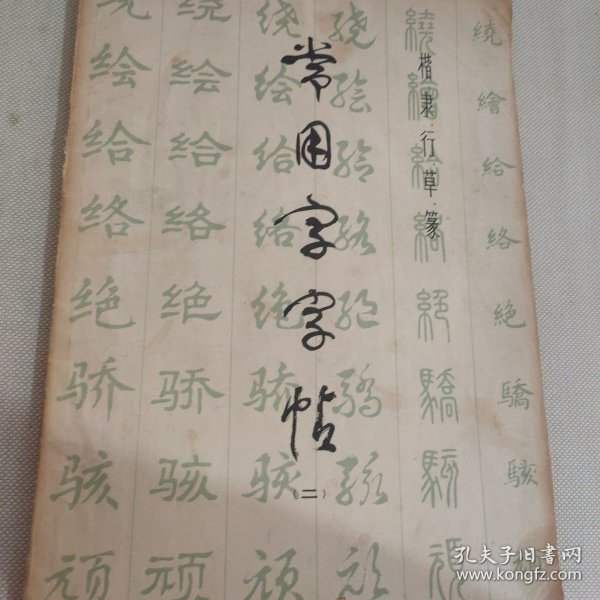 常用字字帖
(二)
楷·隶·行·草·篆
绕绘给络绝骄骇顽
绕绘给络绝骄骇顽
绕绘给络绝骄骇顽
绕绘给络绝骄骇顽
繞繪給絡絕驕駭頑
繞繪給絡絶驕駭
孔夫子旧书网
www.kongfz.com